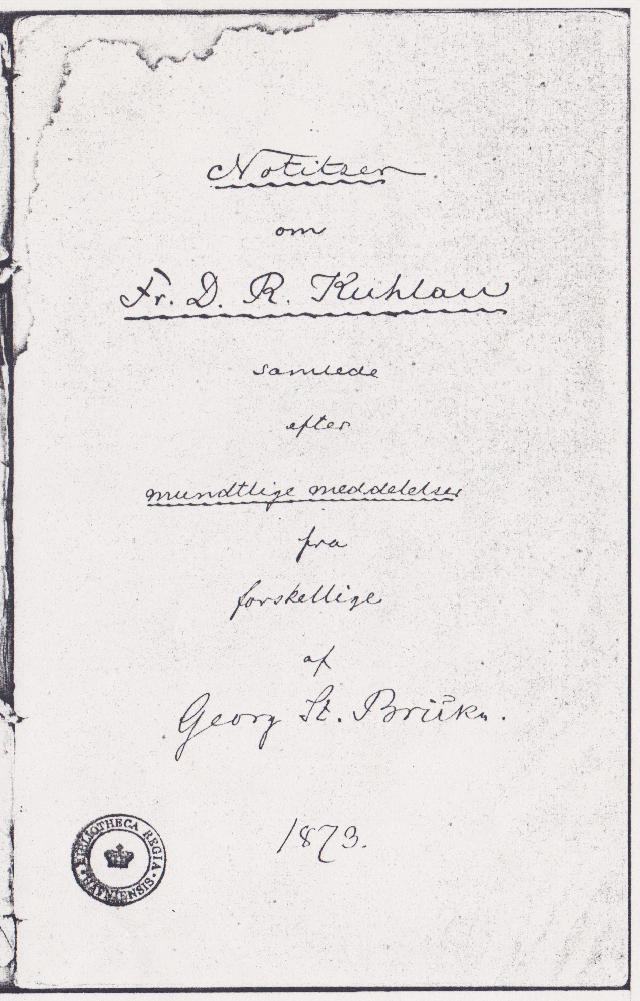 Notitser
om
Fr. D. R. Kuhlau
samlede
efter
mundtlige meddelelser
fra
forskellige
af
Georg St.
1873.
BIBLIOTHECA REGIA HAFNIENSIS